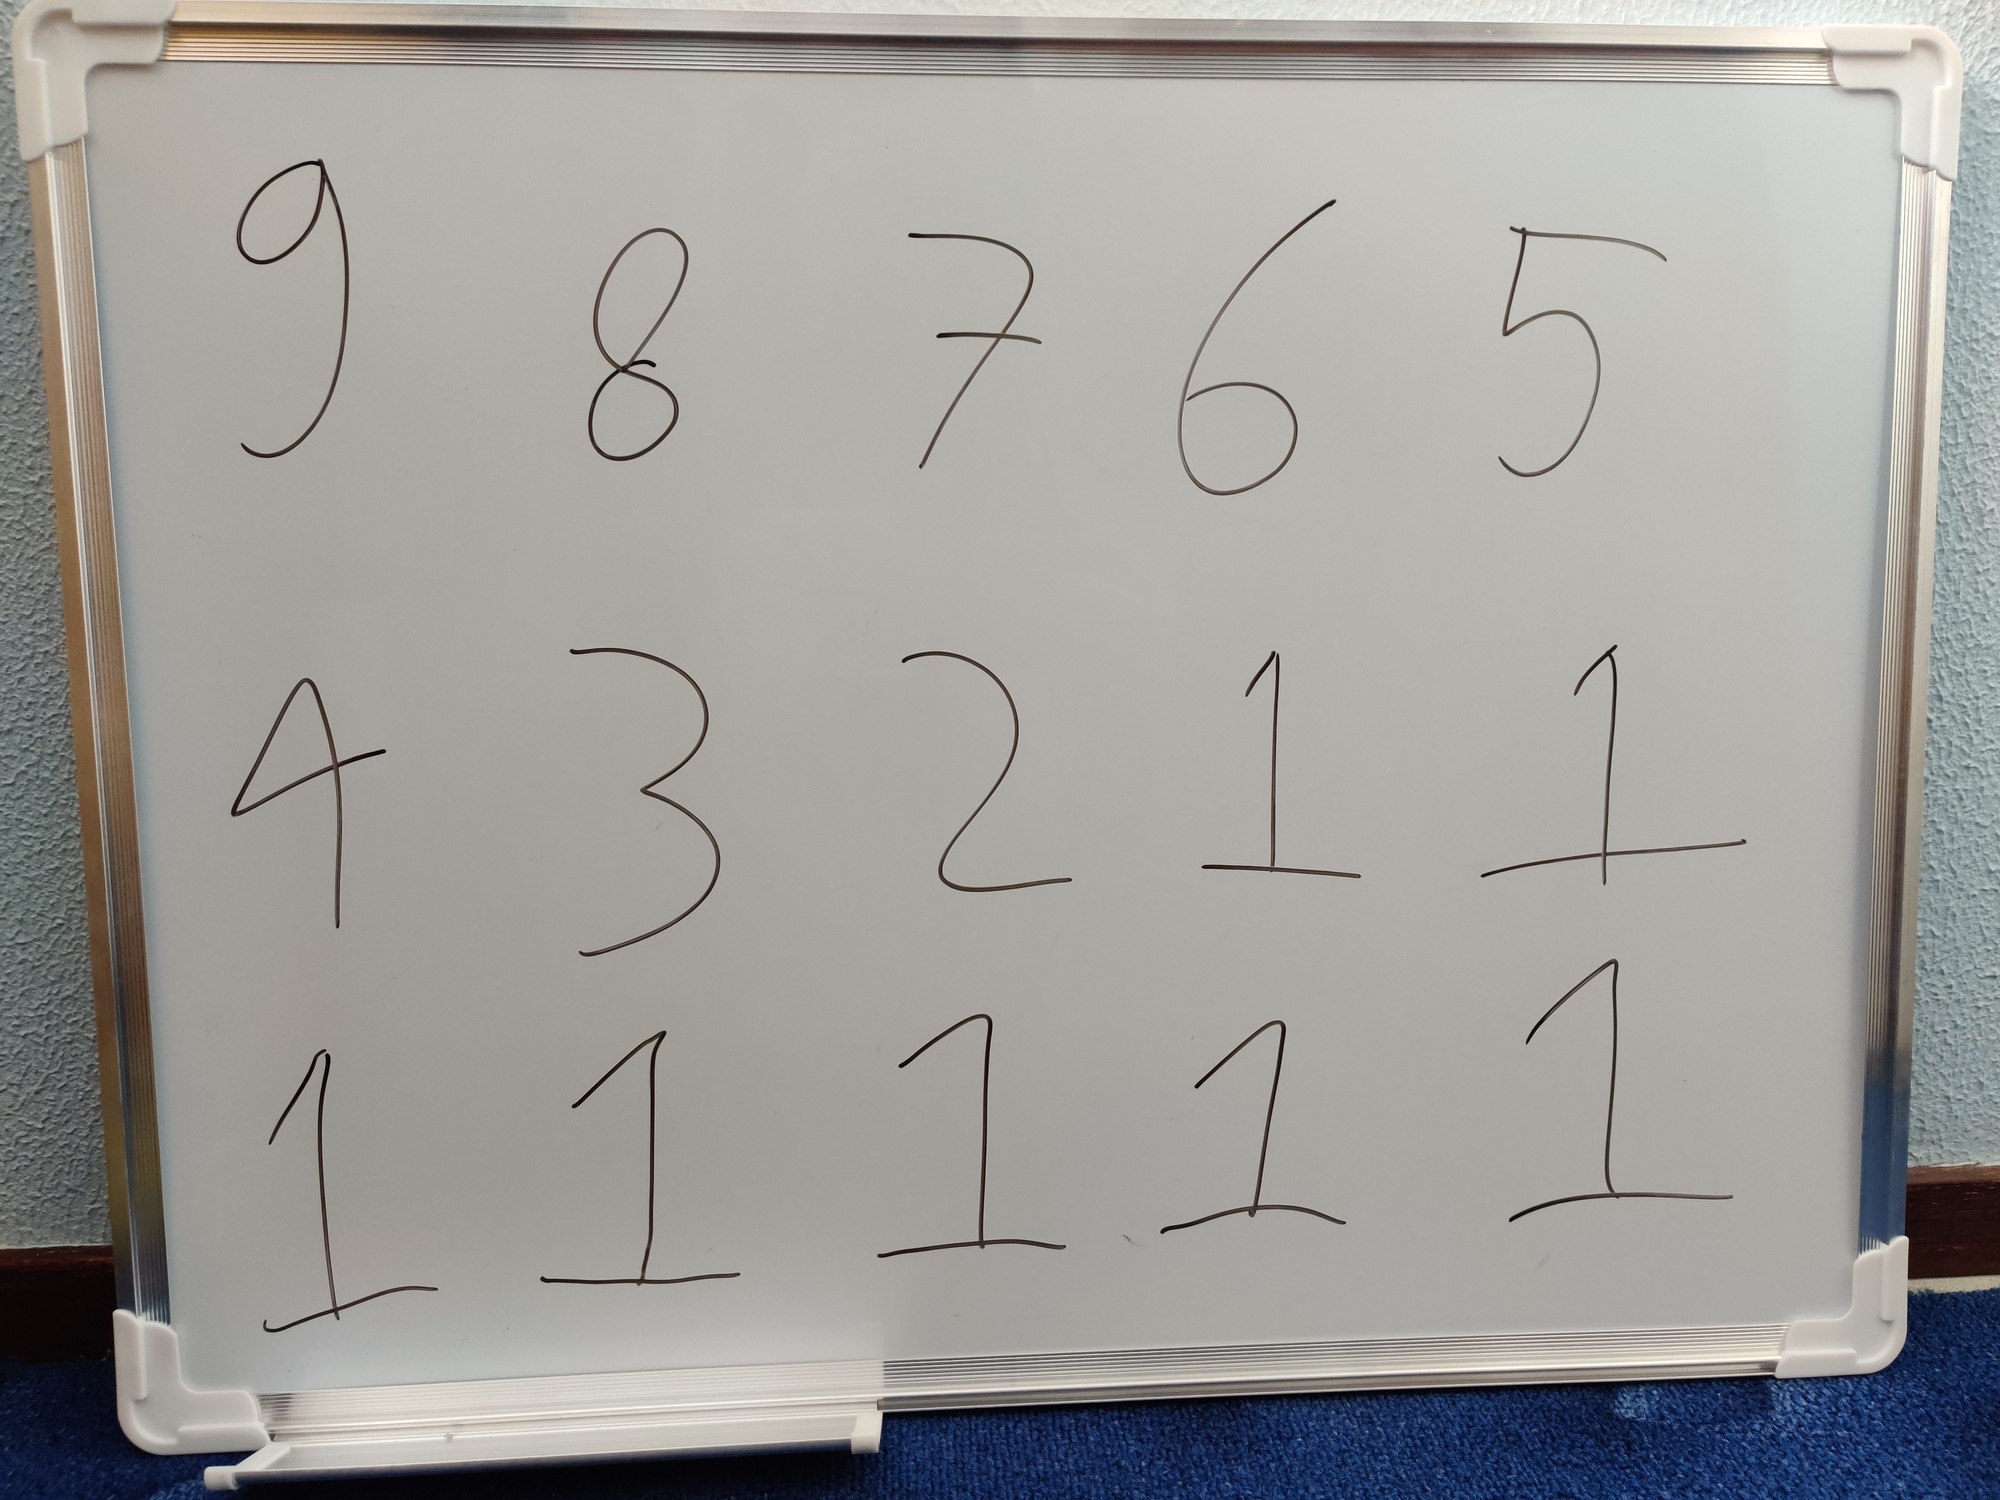 9 8 7 6 5
4 3 2 1 1
1 1 1 1 1